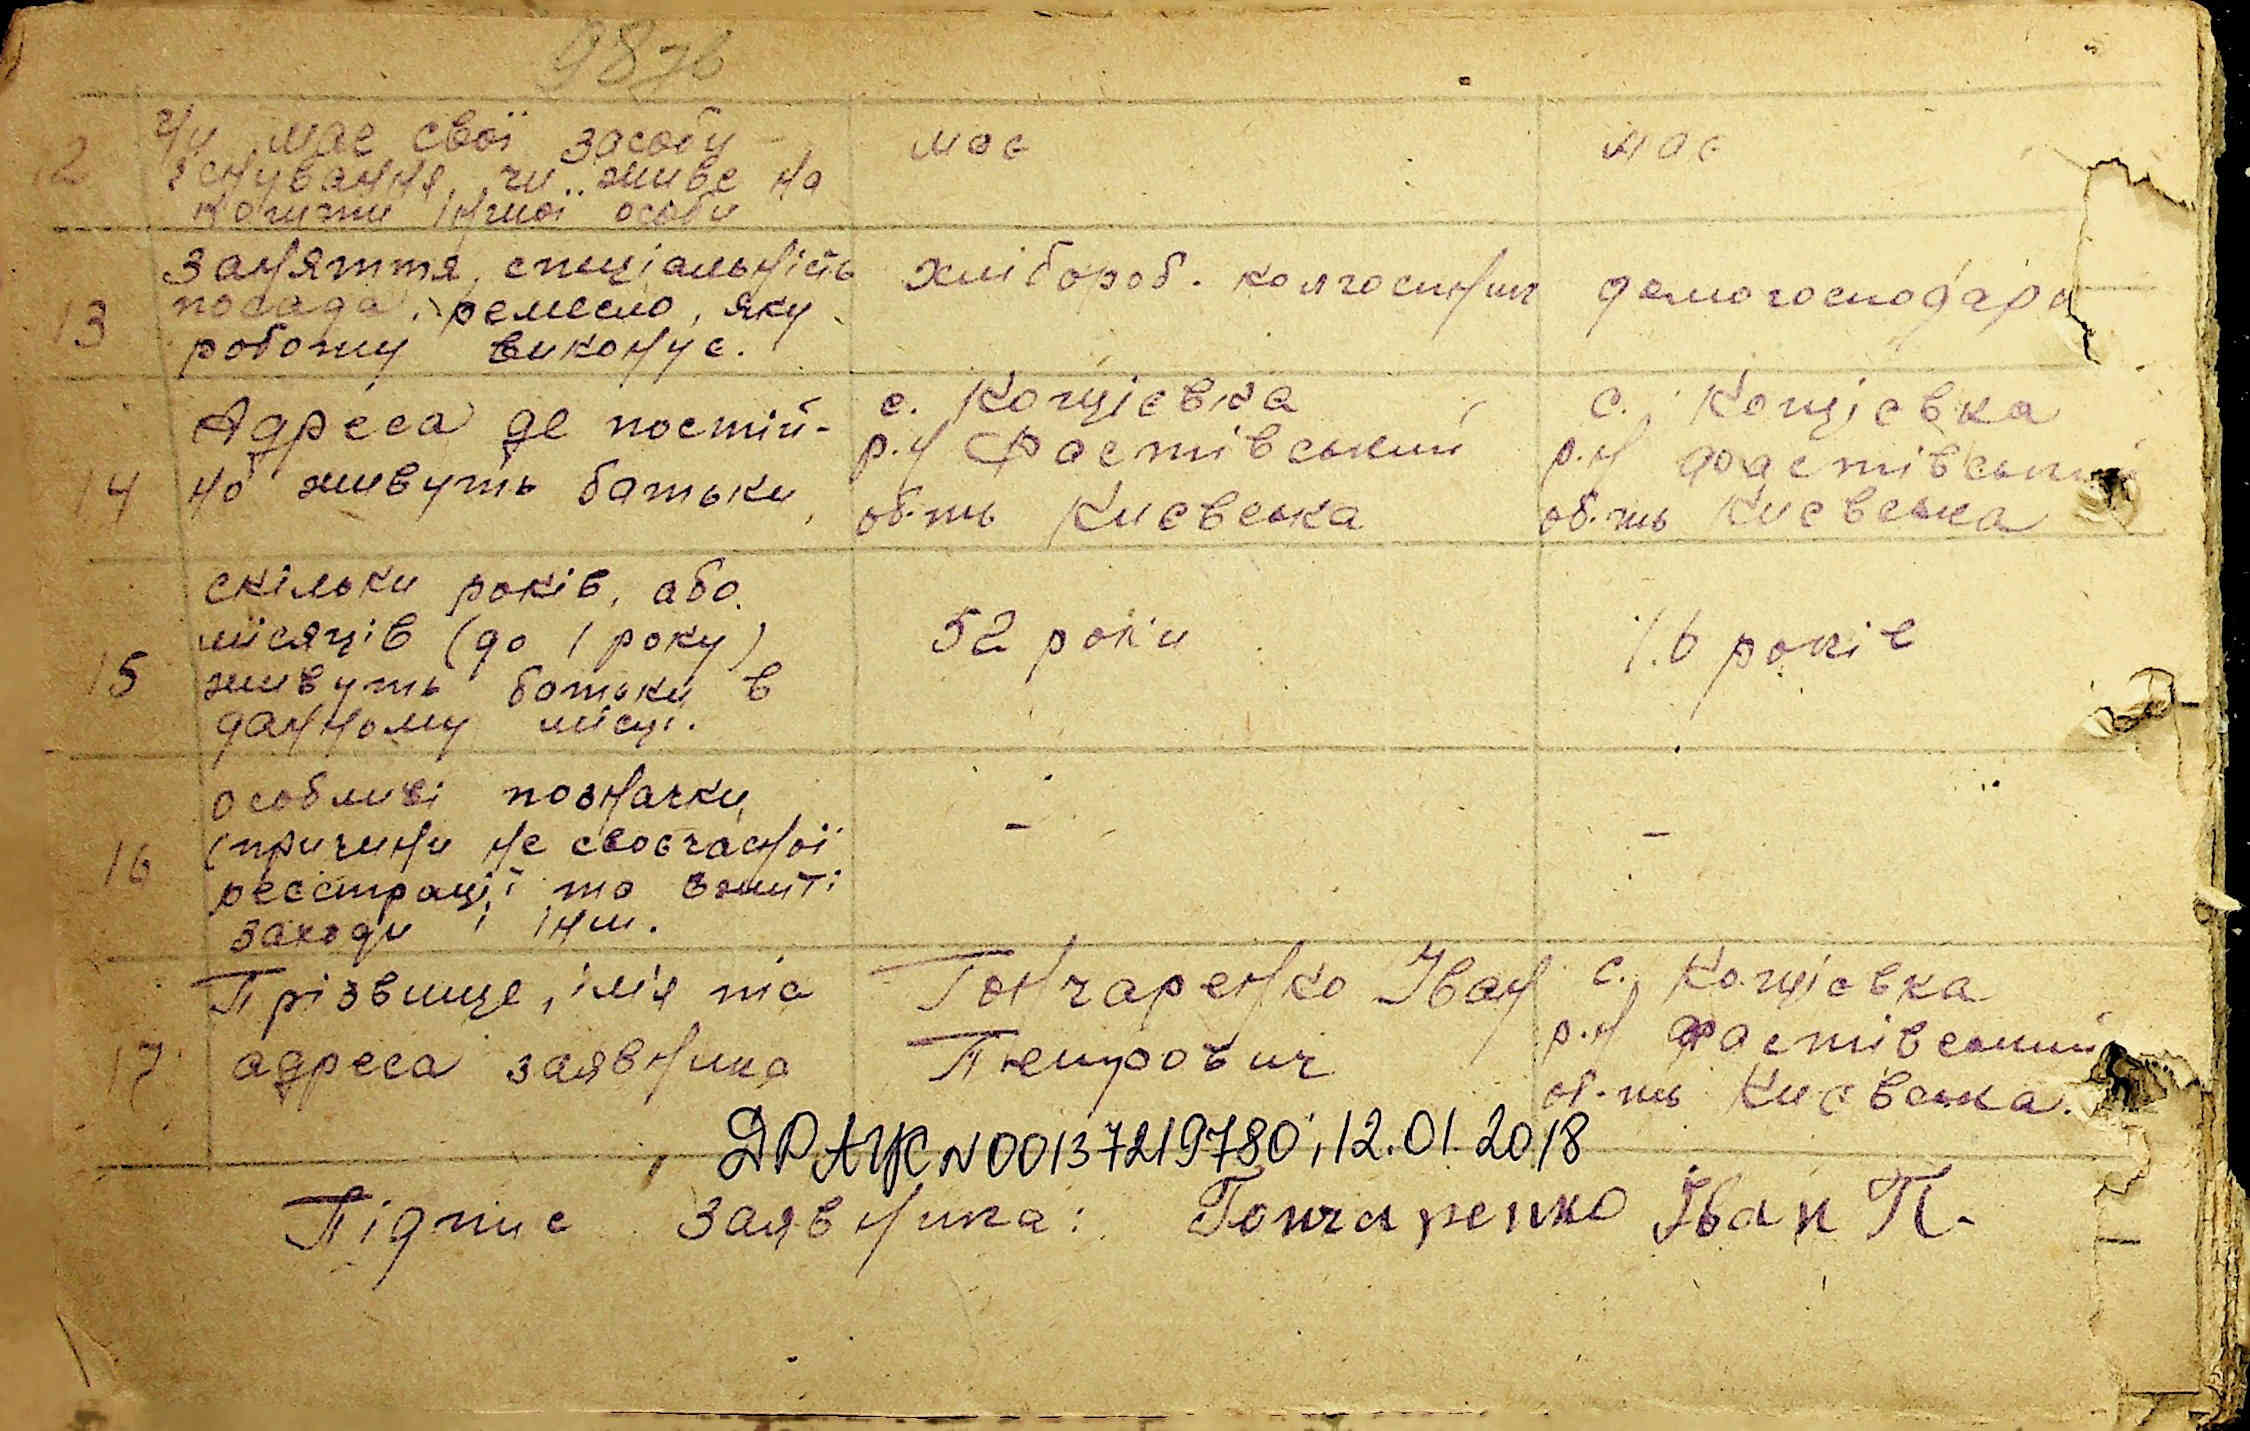 98 зв
12 Чи має свої засоби
існування, чи живе на
кошти іншої особи
має
має
13 Заняття, спеціальність
посада, ремесло, яку
роботу виконує.
хлібороб. колгоспник
домогосподарк
14 Адреса де постій-
но живуть батьки,
с. Кощієвка
р.н Фастівський
об-ть Києвська
с. Кощієвка
р.н Фастівський
об-ть Києвська
15 скільки років, або
місяців (до 1 року)
живуть батьки в
данному місці.
52 роки
16 років
16 особливі позначки,
(причини не своєчасної
реєстрації та вжиті
заходи і інш.
-
-
17 Прізвище, імʼя та
адреса заявника
Гончаренко Іван
Петрович
с. Кощієвка
р.н Фастівський
об-ть Києвська.
ДРАЦС N00137219780, 12.01.2018
Підпис заявника: Гончаренко Іван П.